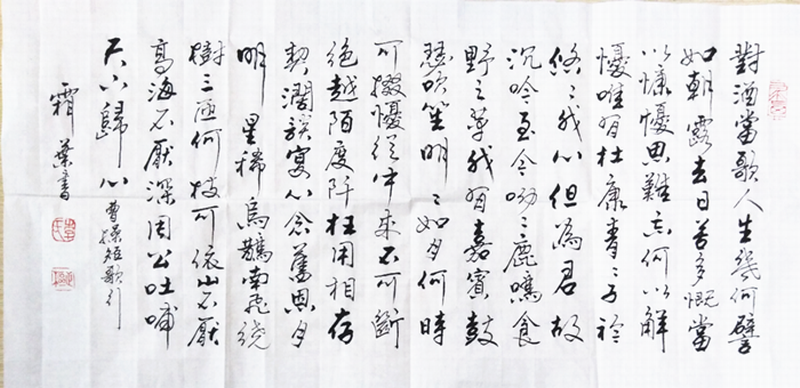 對酒當歌人生幾何譬
如朝露去日苦多慨當
以慷憂思難忘何以解
憂唯有杜康青〻子衿
悠〻我心但為君故
沉吟至今呦〻鹿鳴食
野之苹我有嘉賓鼓
瑟吹笙明〻如月何時
可掇憂從中來不可斷
絕越陌度阡枉用相存
契濶談宴心念舊恩月
明星稀烏鵲南飛繞
樹三匝何枝可依山不厭
高海不厭深周公吐哺
天下歸心曹操短歌行
霜葉書